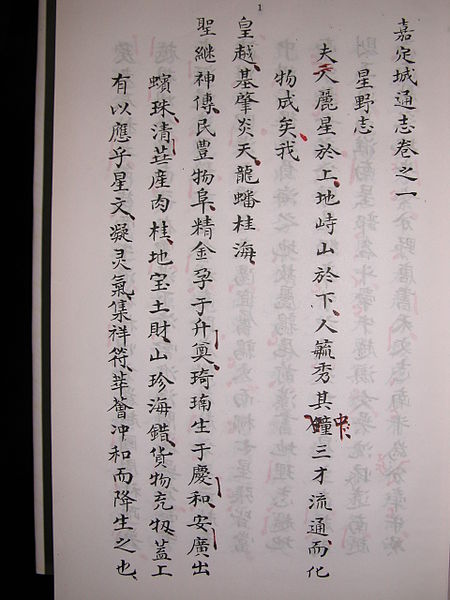 1
嘉定城通志卷之一
星野志
夫天麗星於上地峙山於下人毓秀其鐘中三才流通而化
物成矣我
皇越基肇炎天龍蟠桂海
聖継神傳民豊物阜精金孕于升奠琦㻴生于慶和安廣出
蠙珠清産肉桂地宝土財山珍海錯貨物充牣盖上
有以應乎星文凝灵氣集祥符萃薈冲和而降生之也